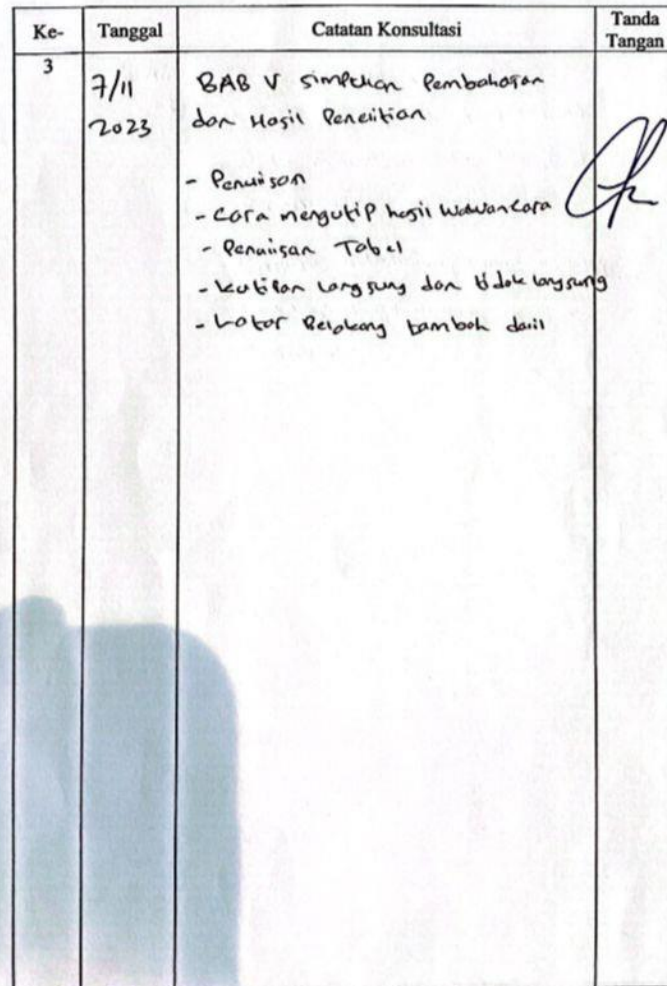 Ke- Tanggal Catatan Konsultasi Tanda Tangan
3 7/11 2023 BAB V Simpulan Pembahasan
dan Hasil Penelitian
- Penulisan
- Cara mengutip hasil wawancara
- Penulisan Tabel
- kutipan langsung dan tidak langsung
- Latar Belakang tambah dalil